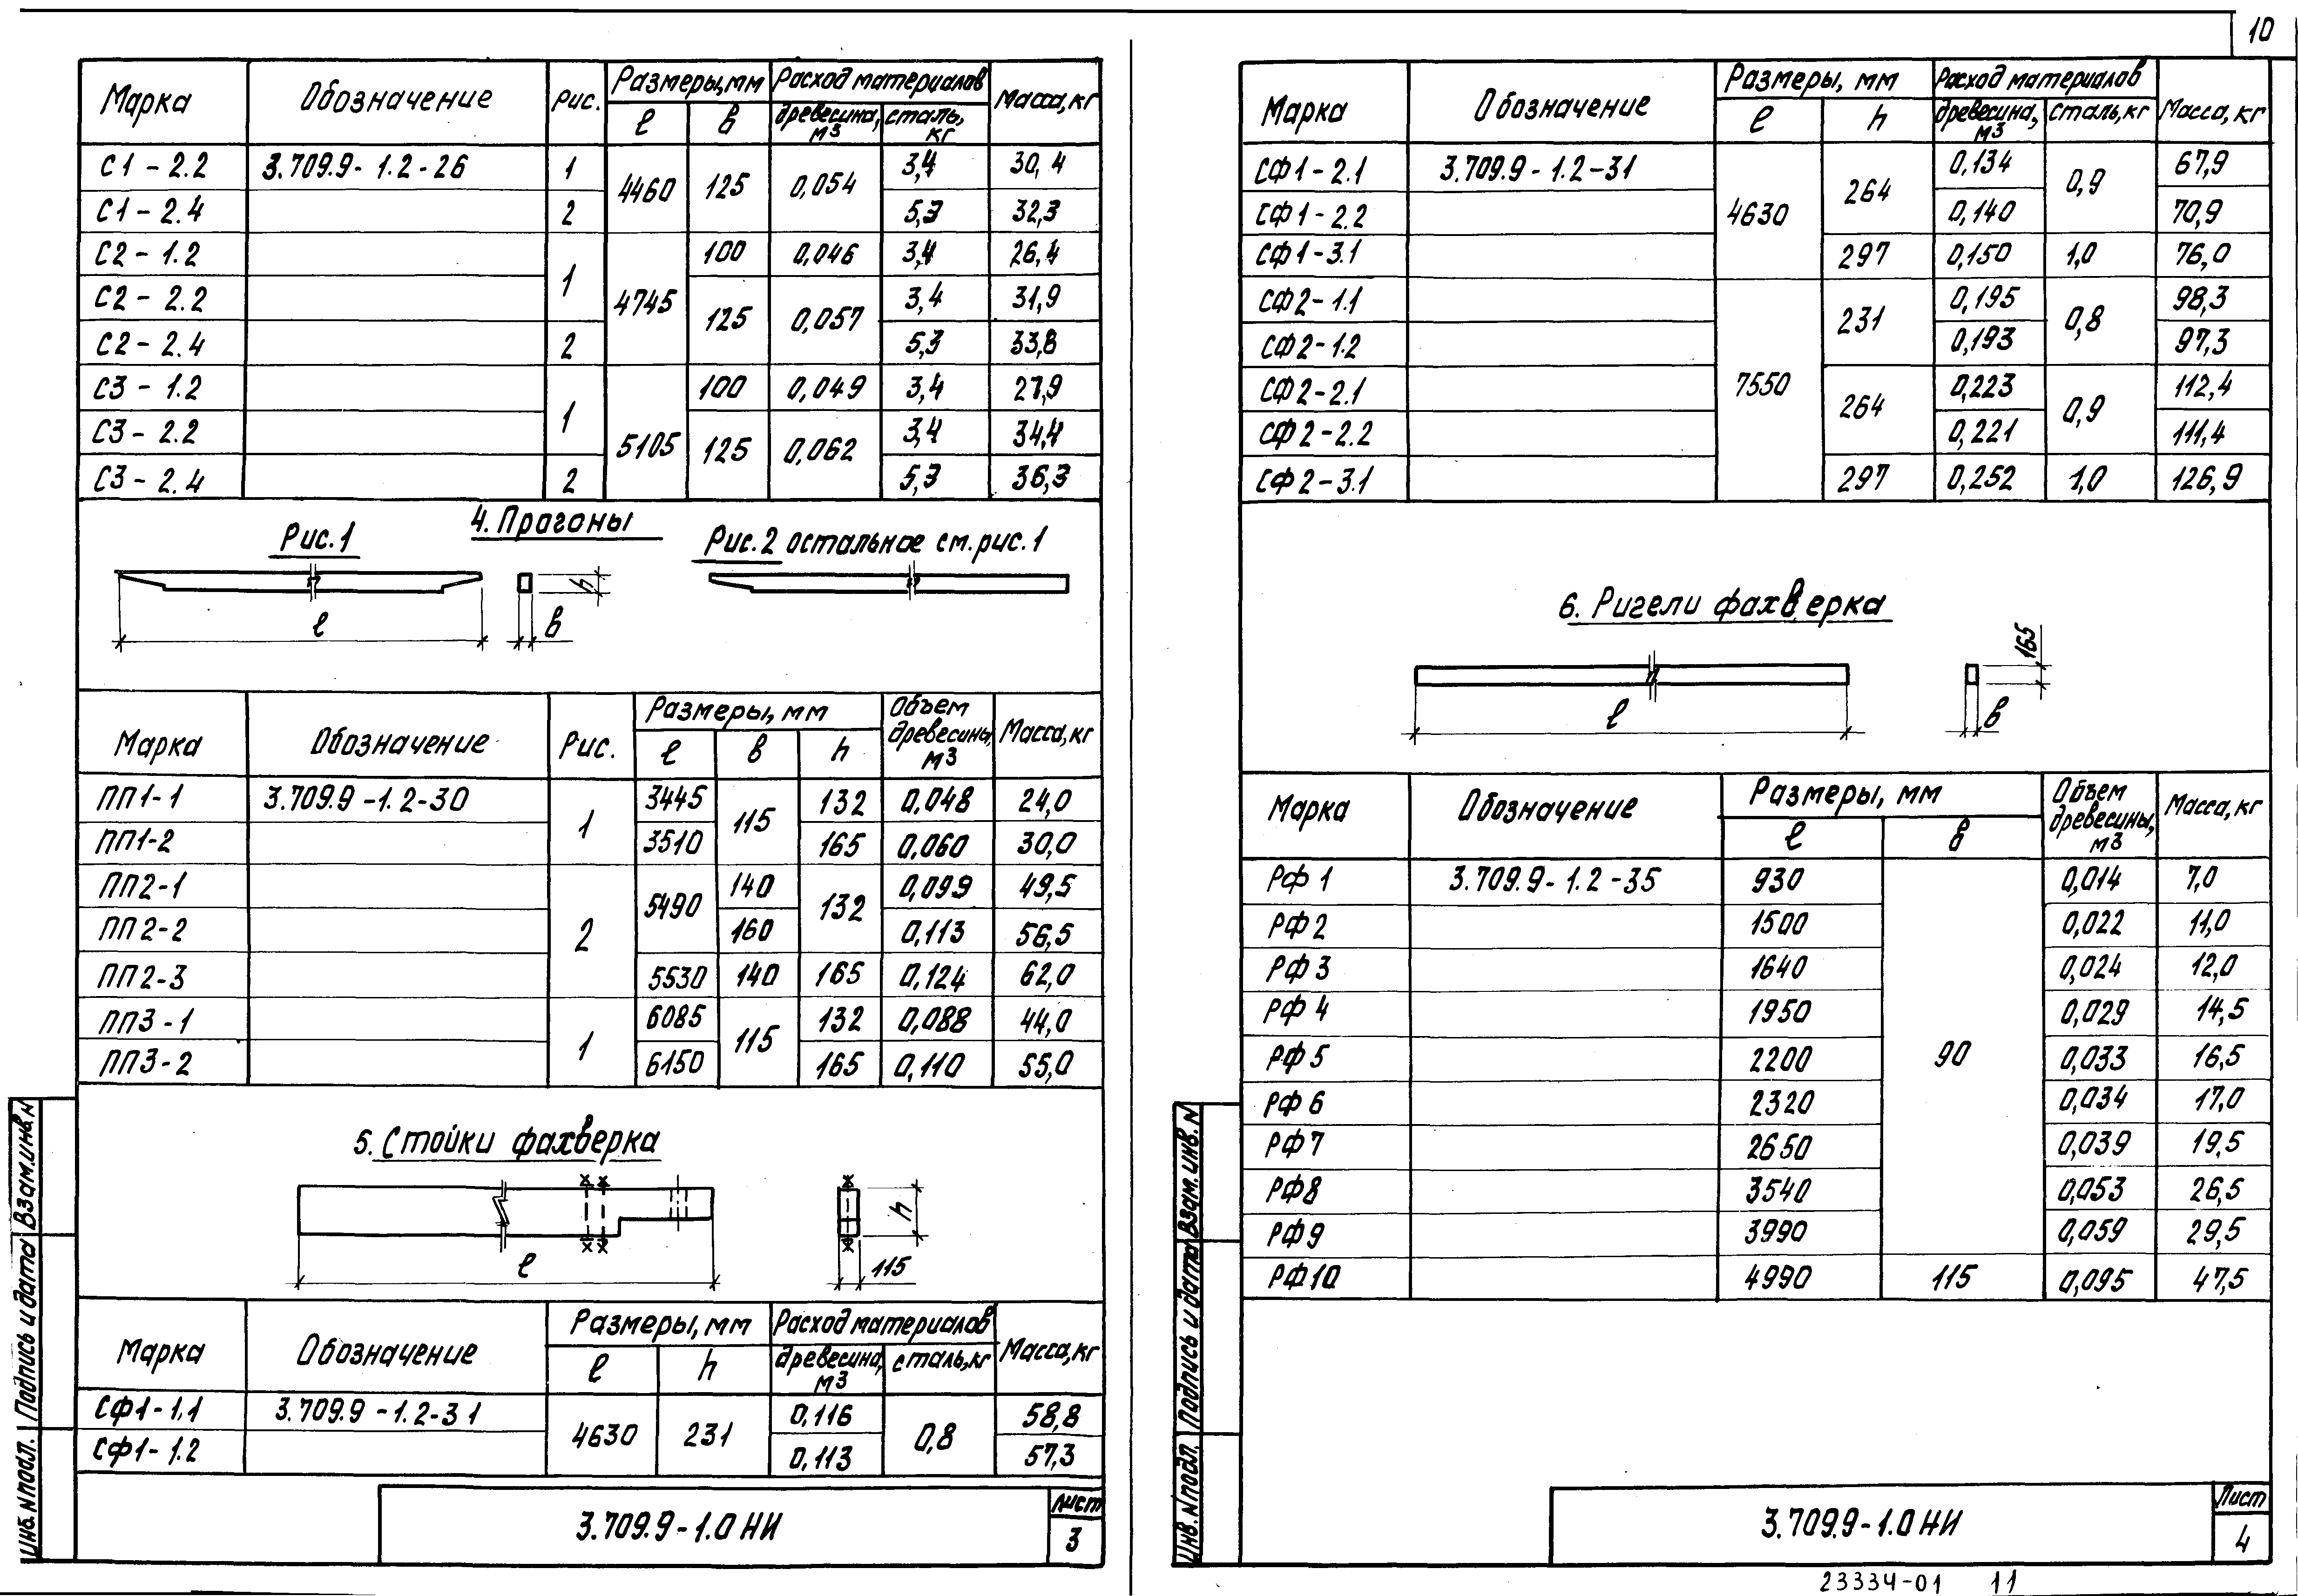 10
Марка Обозначение Рис. Размеры, мм Расход материалов Масса, кг
ℓ в древесина, м3 сталь, кг
С1 - 2.2 3.709.9 - 1.2 - 26 1 4460 125 0,054 3,4 30,4
С1 - 2.4 2 5,3 32,3
С2 - 1.2 1 4745 100 0,046 3,4 26,4
С2 - 2.2 125 0,057 3,4 31,9
С2 - 2.4 2 5,3 33,8
С3 - 1.2 1 5105 100 0,049 3,4 27,9
С3 - 2.2 125 0,062 3,4 34,4
С3 - 2.4 2 5,3 36,3
4. Прогоны
Рис. 1
Рис. 2 остальное см. рис. 1
ℓ в h
Марка Обозначение Рис. Размеры, мм Объем древесины, м3 Масса, кг
ℓ в h
ПП1-1 3.709.9 - 1.2-30 1 3445 115 132 0,048 24,0
ПП1-2 3510 165 0,060 30,0
ПП2-1 2 5490 140 132 0,099 49,5
ПП2-2 160 0,113 56,5
ПП2-3 5530 140 165 0,124 62,0
ПП3-1 1 6085 115 132 0,088 44,0
ПП3-2 6150 165 0,110 55,0
5. Стойки фахверка
ℓ h 115
Марка Обозначение Размеры, мм Расход материалов Масса, кг
ℓ h древесина, м3 сталь, кг
СФ1-1.1 3.709.9 - 1.2-31 4630 231 0,116 0,8 58,8
СФ1-1.2 0,113 57,3
3.709.9-1.0 НИ
Лист
3
Инв. N подл. Подпись и дата Взам. инв. N
Марка Обозначение Размеры, мм Расход материалов Масса, кг
ℓ h древесина, м3 сталь, кг
СФ1-2.1 3.709.9 - 1.2-31 4630 264 0,134 0,9 67,9
СФ1-2.2 0,140 70,9
СФ1-3.1 297 0,150 1,0 76,0
СФ2-1.1 7550 231 0,195 0,8 98,3
СФ2-1.2 0,193 97,3
СФ2-2.1 264 0,223 0,9 112,4
СФ2-2.2 0,221 111,4
СФ2-3.1 297 0,252 1,0 126,9
6. Ригели фахверка
ℓ в 165
Марка Обозначение Размеры, мм Объем древесины, м3 Масса, кг
ℓ в
РФ1 3.709.9 - 1.2-35 930 90 0,014 7,0
РФ2 1500 0,022 11,0
РФ3 1640 0,024 12,0
РФ4 1950 0,029 14,5
РФ5 2200 0,033 16,5
РФ6 2320 0,034 17,0
РФ7 2650 0,039 19,5
РФ8 3540 0,053 26,5
РФ9 3990 0,059 29,5
РФ10 4990 115 0,095 47,5
3.709.9-1.0 НИ
Лист
4
Инв. N подл. Подпись и дата Взам. инв. N
23334-01 11